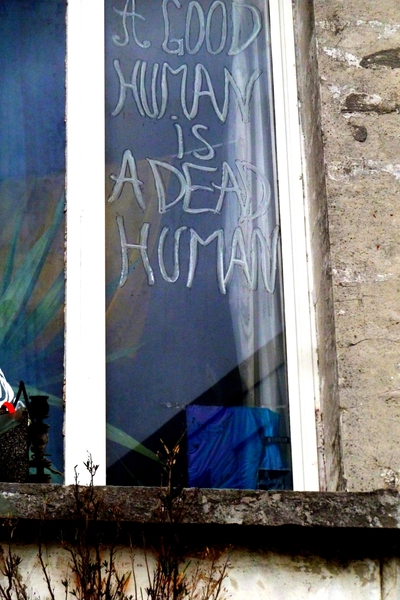 A GOOD
HUMAN
iS
A DEAD
HUMAN